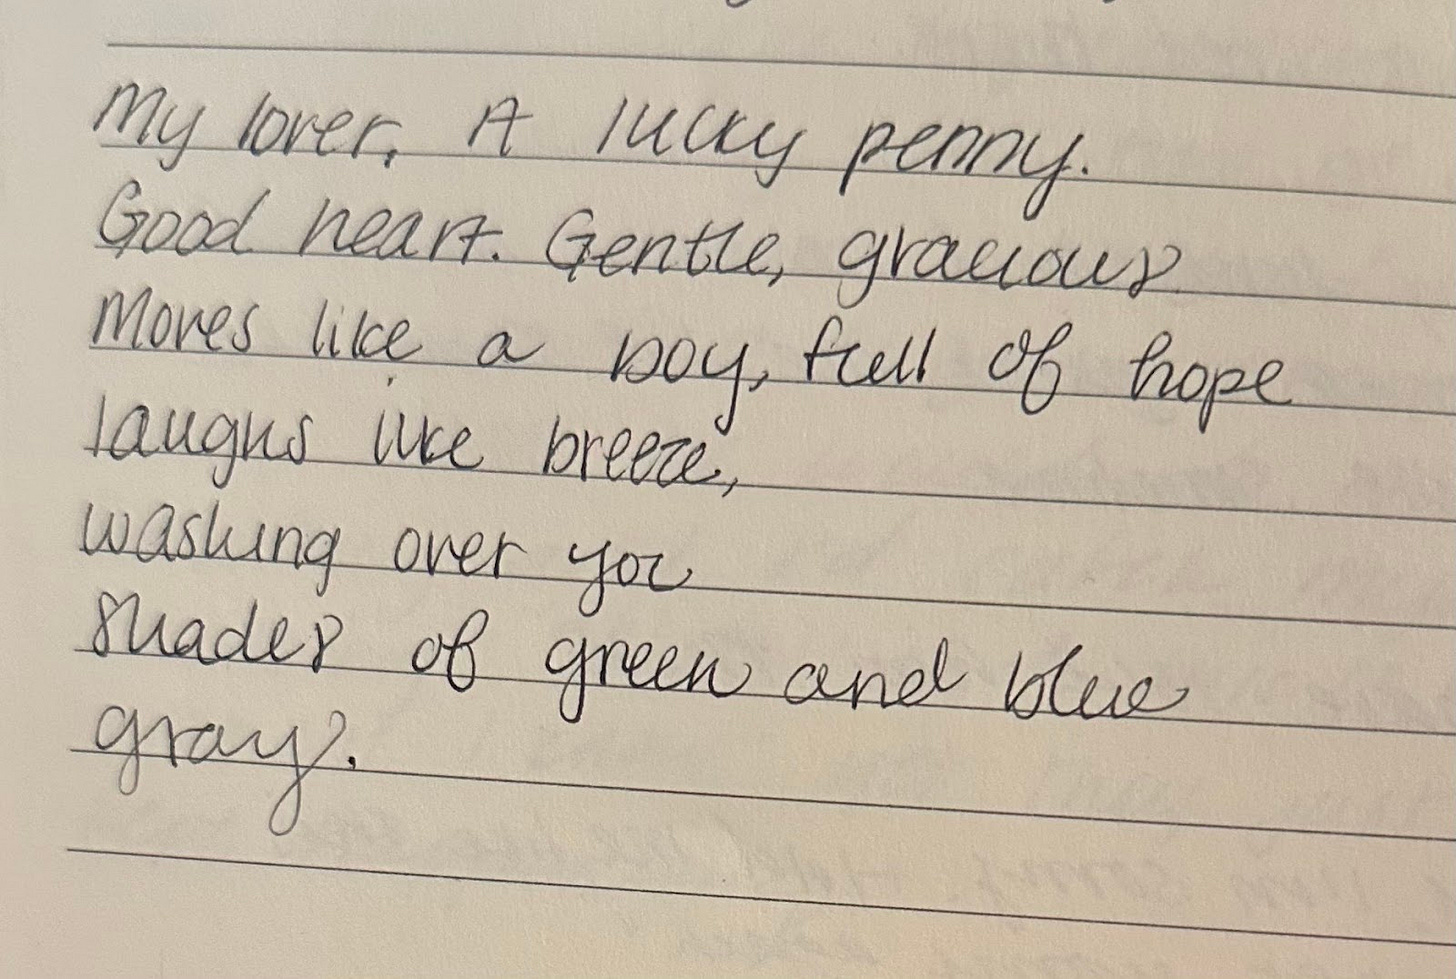 My lover, A lucky penny.
Good heart. Gentle, gracious
Moves like a boy, full of hope
laughs like breeze,
washing over you
shades of green and blue
gray.